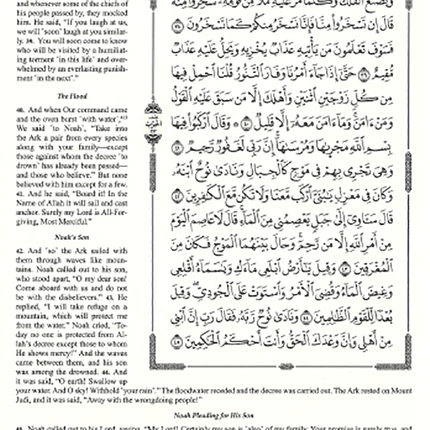 and whenever some of the chiefs of
his people passed by, they mocked
him. He said, “If you laugh at us,
we will ˹soon˺ laugh at you similar-
ly. 39. You will soon come to know
who will be visited by a humiliat-
ing torment ˹in this life˺ and over-
whelmed by an everlasting punish-
ment ˹in the next˺.”
The Flood
40. And when Our command came
and the oven burst ˹with water˺,
We said ˹to Noah˺, “Take into
the Ark a pair from every species
along with your family—except
those against whom the decree ˹to
drown˺ has already been passed—
and those who believe.” But none
believed with him except for a few.
41. And he said, “Board it! In the
Name of Allah it will sail and cast
anchor. Surely my Lord is All-For-
giving, Most Merciful.”
Noah’s Son
42. And ˹so˺ the Ark sailed with
them through waves like moun-
tains. Noah called out to his son,
who stood apart, “O my dear son!
Come aboard with us and do not
be with the disbelievers.” 43. He
replied, “I will take refuge on a
mountain, which will protect me
from the water.” Noah cried, “To-
day no one is protected from Al-
lah’s decree except those to whom
He shows mercy!” And the waves
came between them, and his son
was among the drowned. 44. And
it was said, “O earth! Swallow up
your water. And O sky! Withhold ˹your rain˺.” The floodwater receded and the decree was carried out. The Ark rested on Mount
Judi, and it was said, “Away with the wrongdoing people!”
Noah Pleading for His Son
45. Noah called out to his Lord, saying, “My Lord! Certainly my son is ˹also˺ of my family, Your promise is surely true, and
وَيَصْنَعُ ٱلْفُلْكَ وَكُلَّمَا مَرَّ عَلَيْهِ مَلَأٌ مِّن قَوْمِهِۦ سَخِرُوا۟ مِنْهُ
قَالَ إِن تَسْخَرُوا۟ مِنَّا فَإِنَّا نَسْخَرُ مِنكُمْ كَمَا تَسْخَرُونَ ٣٨
فَسَوْفَ تَعْلَمُونَ مَن يَأْتِيهِ عَذَابٌ يُخْزِيهِ وَيَحِلُّ عَلَيْهِ عَذَابٌ
مُّقِيمٌ ٣٩ حَتَّىٰٓ إِذَا جَآءَ أَمْرُنَا وَفَارَ ٱلتَّنُّورُ قُلْنَا ٱحْمِلْ فِيهَا
مِن كُلٍّ زَوْجَيْنِ ٱثْنَيْنِ وَأَهْلَكَ إِلَّا مَن سَبَقَ عَلَيْهِ ٱلْقَوْلُ
وَمَنْ ءَامَنَ وَمَآ ءَامَنَ مَعَهُۥٓ إِلَّا قَلِيلٌ ٤٠ وَقَالَ ٱرْكَبُوا۟ فِيهَا
بِسْمِ ٱللَّهِ مَجْر۪ىٰهَا وَمُرْسَىٰهَآ إِنَّ رَبِّى لَغَفُورٌ رَّحِيمٌ ٤١
وَهِىَ تَجْرِى بِهِمْ فِى مَوْجٍ كَٱلْجِبَالِ وَنَادَىٰ نُوحٌ ٱبْنَهُۥ
وَكَانَ فِى مَعْزِلٍ يَـٰبُنَىَّ ٱرْكَب مَّعَنَا وَلَا تَكُن مَّعَ ٱلْكَـٰفِرِينَ ٤٢
قَالَ سَـَٔاوِىٓ إِلَىٰ جَبَلٍ يَعْصِمُنِى مِنَ ٱلْمَآءِ قَالَ لَا عَاصِمَ ٱلْيَوْمَ
مِنْ أَمْرِ ٱللَّهِ إِلَّا مَن رَّحِمَ وَحَالَ بَيْنَهُمَا ٱلْمَوْجُ فَكَانَ مِنَ
ٱلْمُغْرَقِينَ ٤٣ وَقِيلَ يَـٰٓأَرْضُ ٱبْلَعِى مَآءَكِ وَيَـٰسَمَآءُ أَقْلِعِى
وَغِيضَ ٱلْمَآءُ وَقُضِىَ ٱلْأَمْرُ وَٱسْتَوَتْ عَلَى ٱلْجُودِىِّ وَقِيلَ
بُعْدًا لِّلْقَوْمِ ٱلظَّـٰلِمِينَ ٤٤ وَنَادَىٰ نُوحٌ رَّبَّهُۥ فَقَالَ رَبِّ إِنَّ ٱبْنِى
مِنْ أَهْلِى وَإِنَّ وَعْدَكَ ٱلْحَقُّ وَأَنتَ أَحْكَمُ ٱلْحَـٰكِمِينَ ٤٥